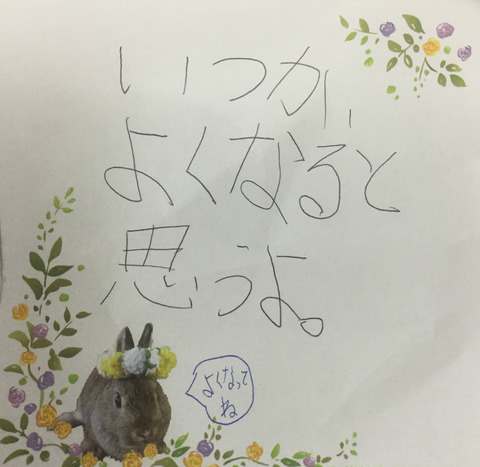 いつか、
よくなると
思うよ。
よくなって
ね